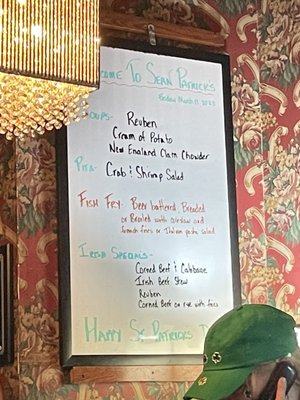 COME TO SEAN PATRICKS
Friday March 17, 2023
OUPS-
Reuben
Cream of Potato
New England Clam Chowder
PITA- Crab & Shrimp Salad
FISH FRY- Beer battered, Breaded
or Broiled with coleslaw and
french fries or Italian pasta salad
IRISH SPECIALS-
Corned Beef & Cabbage
Irish Beef Stew
Reuben
Corned Beef on rye with fries
HAPPY ST. PATRICKS D